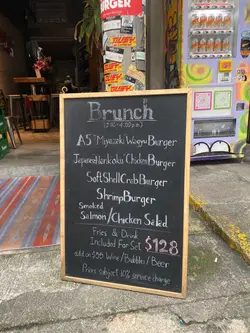 BURGER
Brunch
A5 Miyazaki Wagyu Burger
Japanese Korokoke Chicken Burger
Soft Shell Crab Burger
Shrimp Burger
Smoked
Salmon/Chicken Salad
Fries & Drink
Included For Set $128
add on $55 Wine/Bubbles/Beer
Prices subject 10% service change